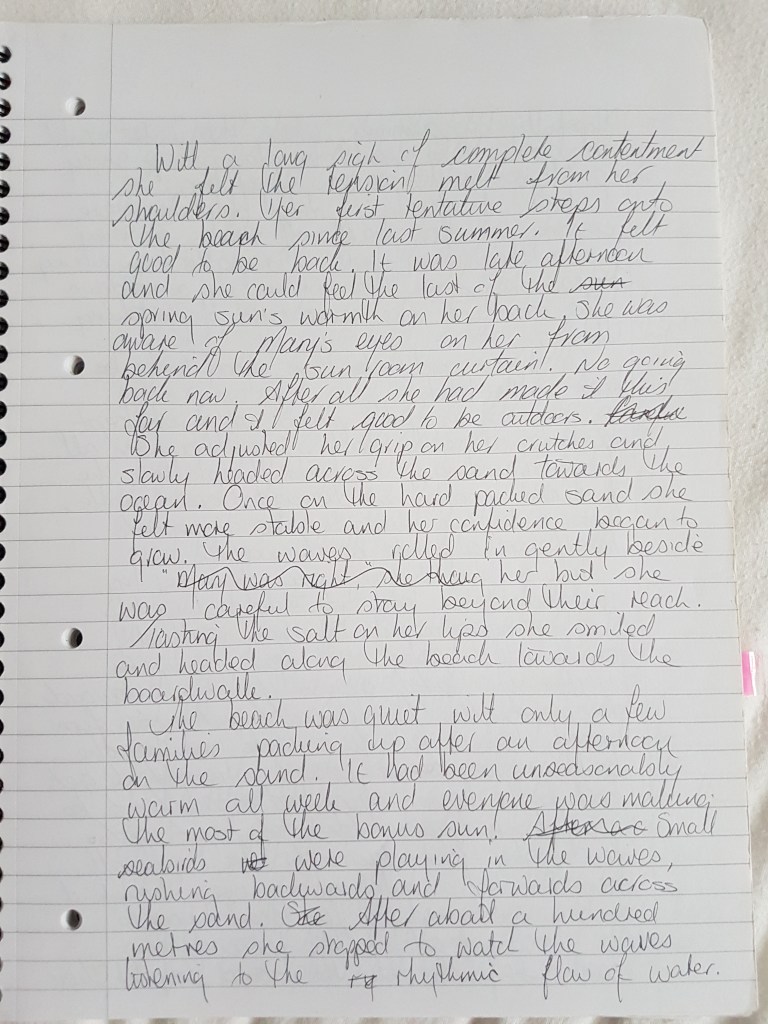 With a long sigh of complete contentment
she felt the tension melt from her
shoulders. Her first tentative steps onto
the beach since last summer. It felt
good to be back. It was late afternoon
and she could feel the last of the sun
spring sun's warmth on her back, she was
aware of Mary's eyes on her from
behind the sun room curtain. No going
back now. After all she had made it this
far and it felt good to be outdoors.
She adjusted her grip on her crutches and
slowly headed across the sand towards the
ocean. Once on the hard packed sand she
felt more stable and her confidence began to
grow. The waves rolled in gently beside
"Mary was right," she thoug her but she
was careful to stay beyond their reach.
Tasting the salt on her lips she smiled
and headed along the beach towards the
boardwalk.
The beach was quiet with only a few
families packing up after an afternoon
on the sand. It had been unseasonably
warm all week and everyone was making
the most of the bonus sun! Small
seabirds were playing in the waves,
rushing backwards and forwards across
the sand. She After about a hundred
metres she stopped to watch the waves
listening to the rhythmic flow of water.